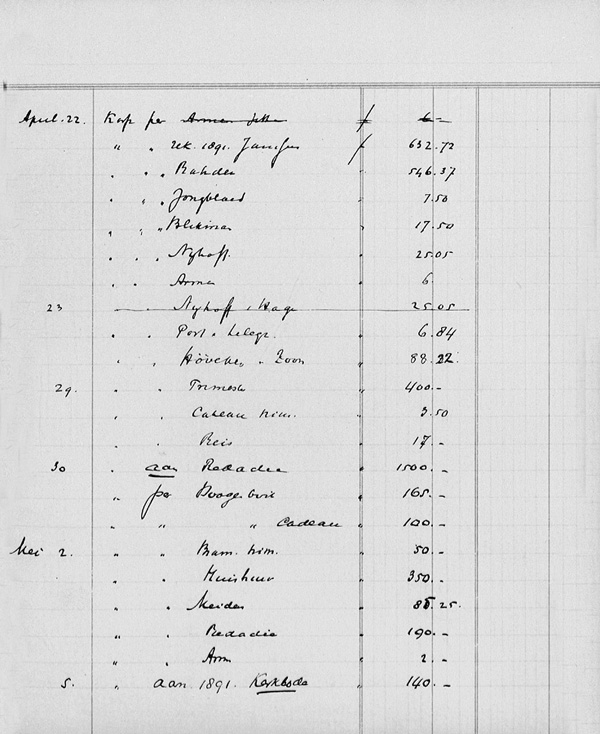 April 22. Kas per Armen f 6 -
" " rek. 1891. f 632.72
" " " 546.37
" " " Jongbloed " 7.50
" " " " 17.50
" " " Nyhoff " 25.05
" " Armen " 6.
23 " Nyhoff " Hage " 25.05
" " Port " telegr. " 6.84
" " Höveker " Zoon " 88.22.
29. " " Trimester " 400.-
" " Cadeau " 3.50
" " Reis " 17.-
30 " aan Redactie " 1500.-
" per " 165.-
" " " Cadeau " 100.-
Mei 2. " " " 50.-
" " Huishuur " 350.-
" " Meiden " 85.25.
" " Redactie " 190.-
" " Arm " 2.-
5. " aan 1891. Kerkbode " 140.-